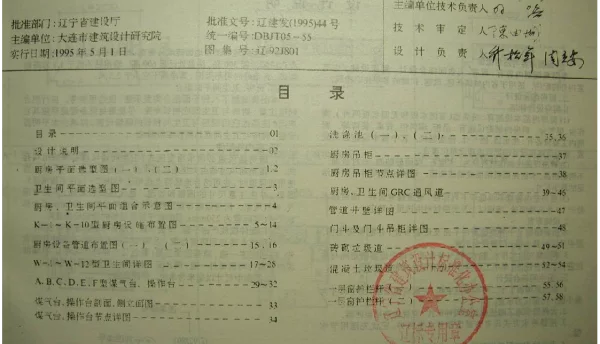 批准部门:辽宁省建设厅
主编单位:大连市建筑设计研究院
实行日期:1995年5月1日
批准文号:辽建发(1995)44号
统一编号:DBJT05-55
图集号:辽92J801
主编单位技术负责人
技术审定人
设计负责人
目 录
目录 01
设计说明 02
厨房平面选型图(一)、(二) 1.2
卫生间平面选型图 3
厨房、卫生间平面组合示意图 4
K-1~K-10型厨房设施布置图 5-14
厨房设备管道布置图(一)、(二) 15、16
W-1~W-12型卫生间详图 17-28
A、B、C、D、E、F型煤气台、操作台 29-32
煤气台、操作台剖面、侧立面图 33
煤气台、操作台节点详图 34
洗涤池(一)、(二) 35、36
厨房吊柜 37
厨房吊柜节点详图 38
厨房、卫生间GRC通风道 39-46
管道斗壁详图 47
门斗及门斗吊柜详图 48
砖砌垃圾道 49-51
混凝土垃圾道 52-54
一层窗护栏 55、56
一层窗护栏杆 57、58